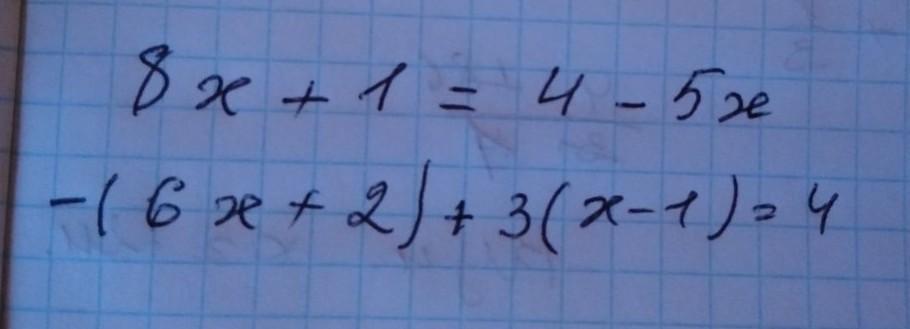 8x + 1 = 4 - 5x
-(6x + 2) + 3(x - 1) = 4